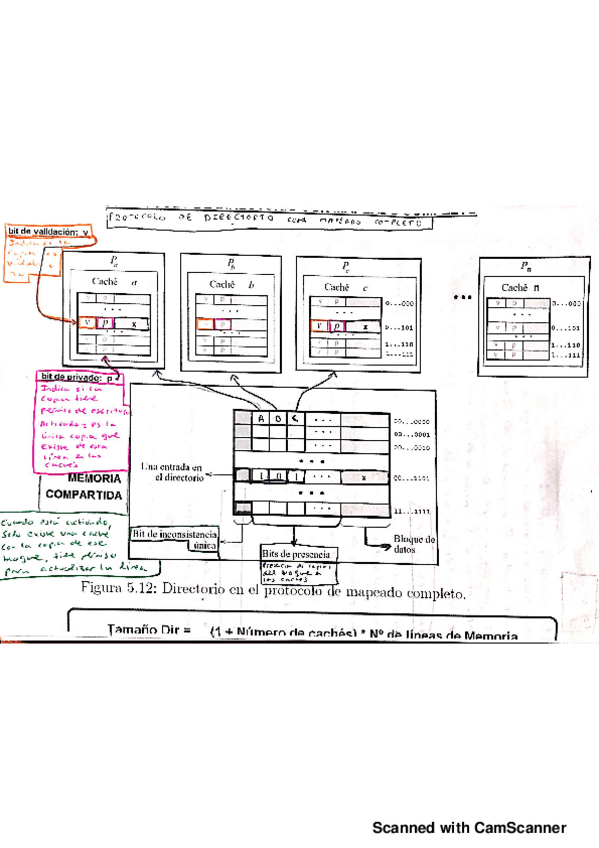 PROTOCOLO DE DIRECTORIO CON MAPEADO COMPLETO
bit de validación: v
Indica si la
copia es
Pa
Caché a
v p
v p x
v p
v p
Pb
Caché b
v p
v p
v p
Pc
Caché c
v p
v p x
v p
v p
0...000
0...101
1...110
1...111
Pn
Caché n
v p
v p
v p
v p
0...000
0...101
1...110
1...111
bit de privado: p
Indica si la
copia tiene
permiso de escritura
Activado = es la
única copia que
existe de esta
línea en las
cachés
MEMORIA
COMPARTIDA
A B C ...
00...0000
00...0001
00...0010
Una entrada en
el directorio
1 0 1 ... x
00...1101
11...1111
Bit de inconsistencia
única
Bits de presencia
Presencia de copias
del bloque en
las cachés
Bloque de
datos
Cuando está activado,
solo existe una caché
con la copia de ese
bloque, tiene permiso
para actualizar la línea
Figura 5.12: Directorio en el protocolo de mapeado completo.
Tamaño Dir = (1 + Número de cachés) * Nº de líneas de Memoria
Scanned with CamScanner